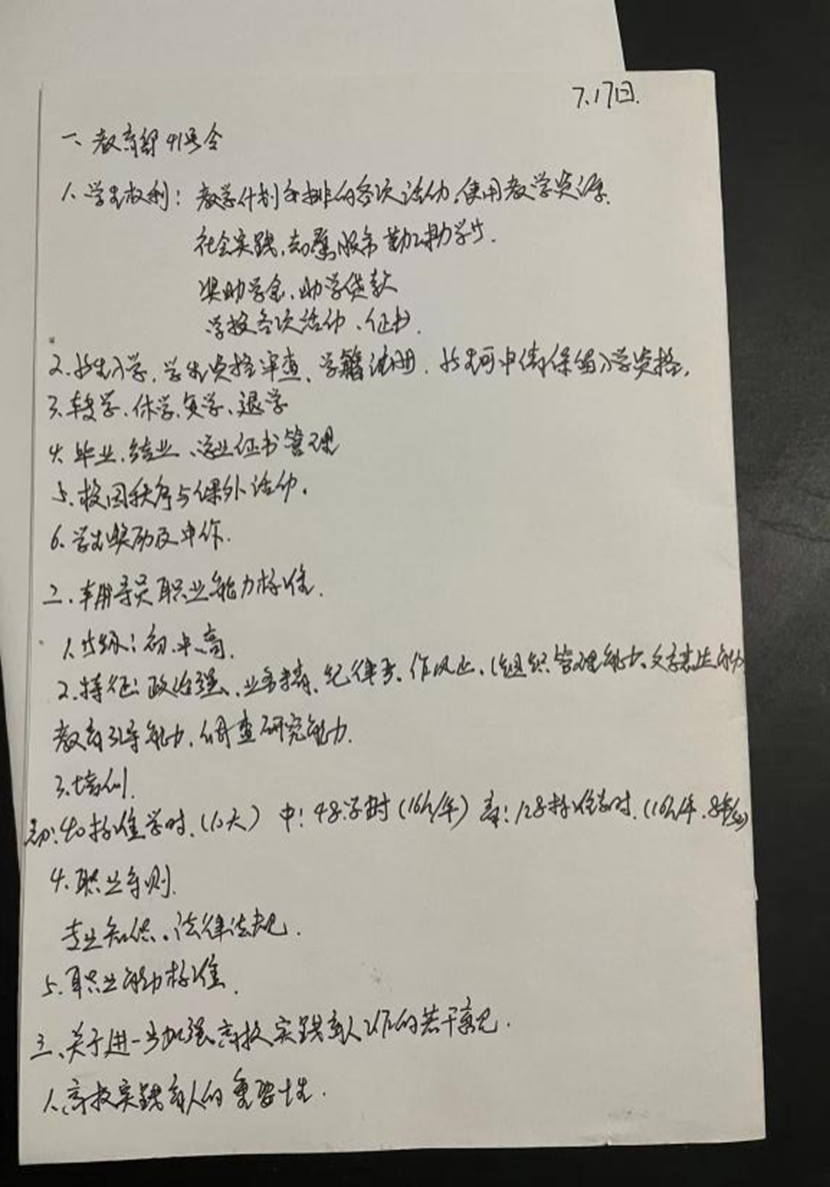 7.17日.
一、教育部41号令
1.学生权利：教学计划安排的各次活动、使用教学资源.
社会实践、志愿服务 勤工助学.
奖助学金、助学贷款
学校各次活动、证书.
2.新生入学、学生资格审查、学籍注册. 新生可申请保留入学资格.
3.转学、休学、复学、退学
4.毕业、结业、学业证书管理
5.校园秩序与课外活动.
6.学生奖励及申诉.
二、辅导员职业能力标准.
1.等级：初.中.高.
2.特征：政治强、业务精、纪律严、作风正、组织管理能力、文字表达能力
教育引导能力、调查研究能力.
3.培训.
初:40标准学时.(10天) 中：48学时(16h/年) 高：128标准学时.(16h/年.8年)
4.职业守则.
专业知识、法律法规.
5.职业能力标准.
三、关于进一步加强高校实践育人工作的若干意见.
1.高校实践育人的重要性.